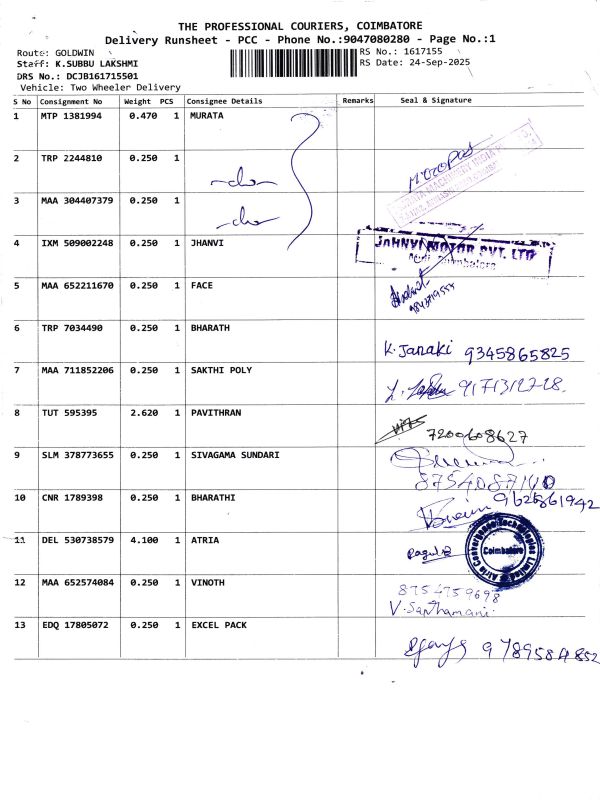 THE PROFESSIONAL COURIERS, COIMBATORE
Delivery Runsheet - PCC - Phone No.:9047080280 - Page No.:1
Route: GOLDWIN RS No.: 1617155
Staff: K.SUBBU LAKSHMI RS Date: 24-Sep-2025
DRS No.: DCJB161715501
Vehicle: Two Wheeler Delivery
S No Consignment No Weight PCS Consignee Details Remarks Seal & Signature
1 MTP 1381994 0.470 1 MURATA
2 TRP 2244810 0.250 1
3 MAA 304407379 0.250 1
4 IXM 509002248 0.250 1 JHANVI JAHNVI MOTOR PVT. LTD
Coimbatore
5 MAA 652211670 0.250 1 FACE
6 TRP 7034490 0.250 1 BHARATH K. Janaki 9345865825
7 MAA 711852206 0.250 1 SAKTHI POLY
8 TUT 595395 2.620 1 PAVITHRAN 7200608627
9 SLM 378773655 0.250 1 SIVAGAMA SUNDARI 8754087100
10 CNR 1789398 0.250 1 BHARATHI
11 DEL 530738579 4.100 1 ATRIA Coimbatore
12 MAA 652574084 0.250 1 VINOTH 8754759698
V. Santhamani
13 EDQ 17805072 0.250 1 EXCEL PACK 9789584852